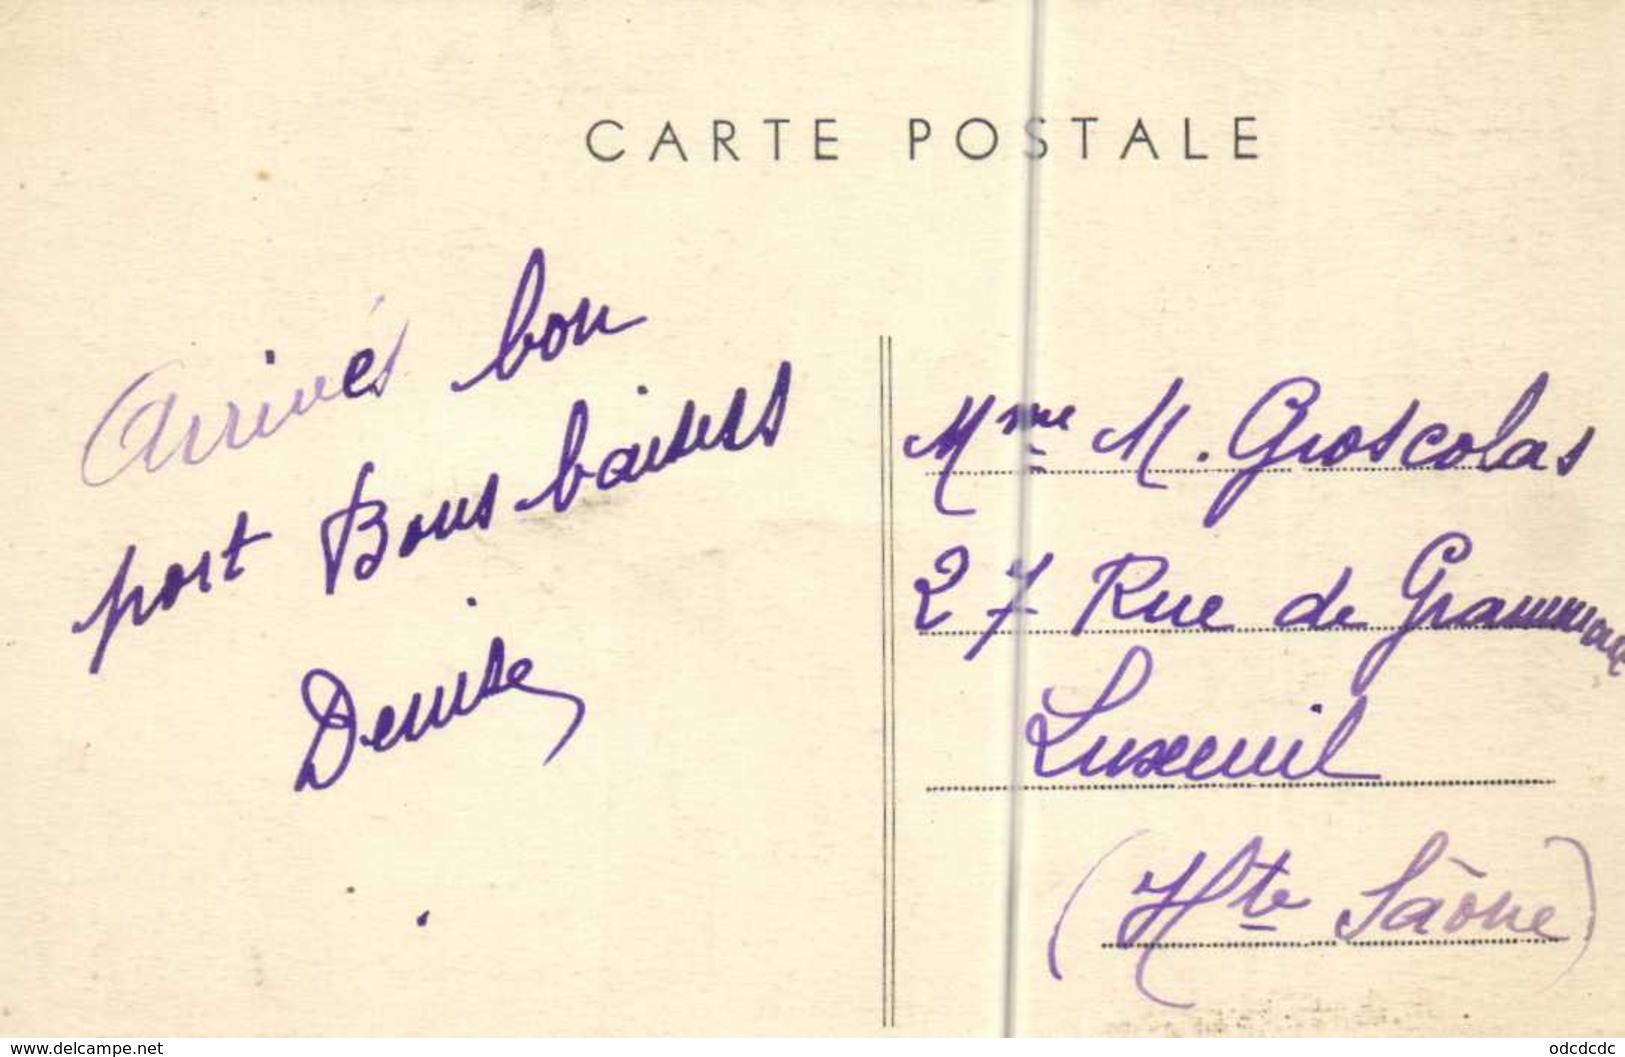 CARTE POSTALE
Arrivés bon
port Bons baisers
Denise
Mme M. Groscolas
27 Rue de Grammont
Luxeuil
(Hte Saône)
www.delcampe.net
odcdcdc